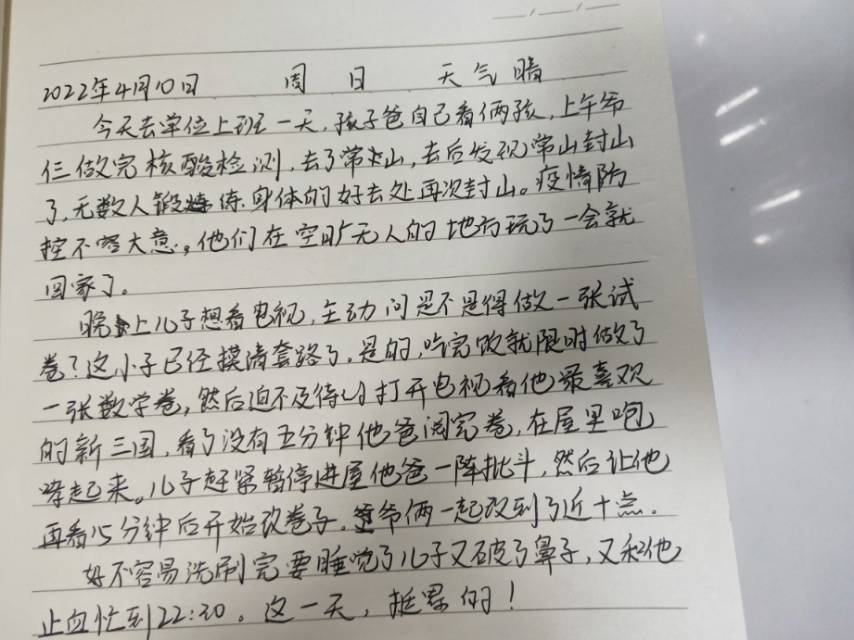 2022年4月10日 周日 天气晴
今天去单位上班一天,孩子爸自己看俩孩,上午爷
仨做完核酸检测,去了常山,去后发现常山封山
了,无数人锻炼身体的好去处再次封山。疫情防
控不容大意。他们在空旷无人的地方玩了一会就
回家了。
晚上儿子想看电视,主动问是不是得做一张试
卷?这小子已经摸清套路了,是的,吃完饭就限时做了
一张数学卷,然后迫不及待的打开电视看他最喜欢
的新三国,看了没有五分钟他爸阅完卷,在屋里咆
哮起来。儿子赶紧暂停进屋他爸一阵批斗,然后让他
再看15分钟后开始改卷子,爷俩一起改到了近十点.
好不容易洗刷完要睡觉了儿子又破了鼻子,又和他
止血忙到22:30。这一天,挺累的!